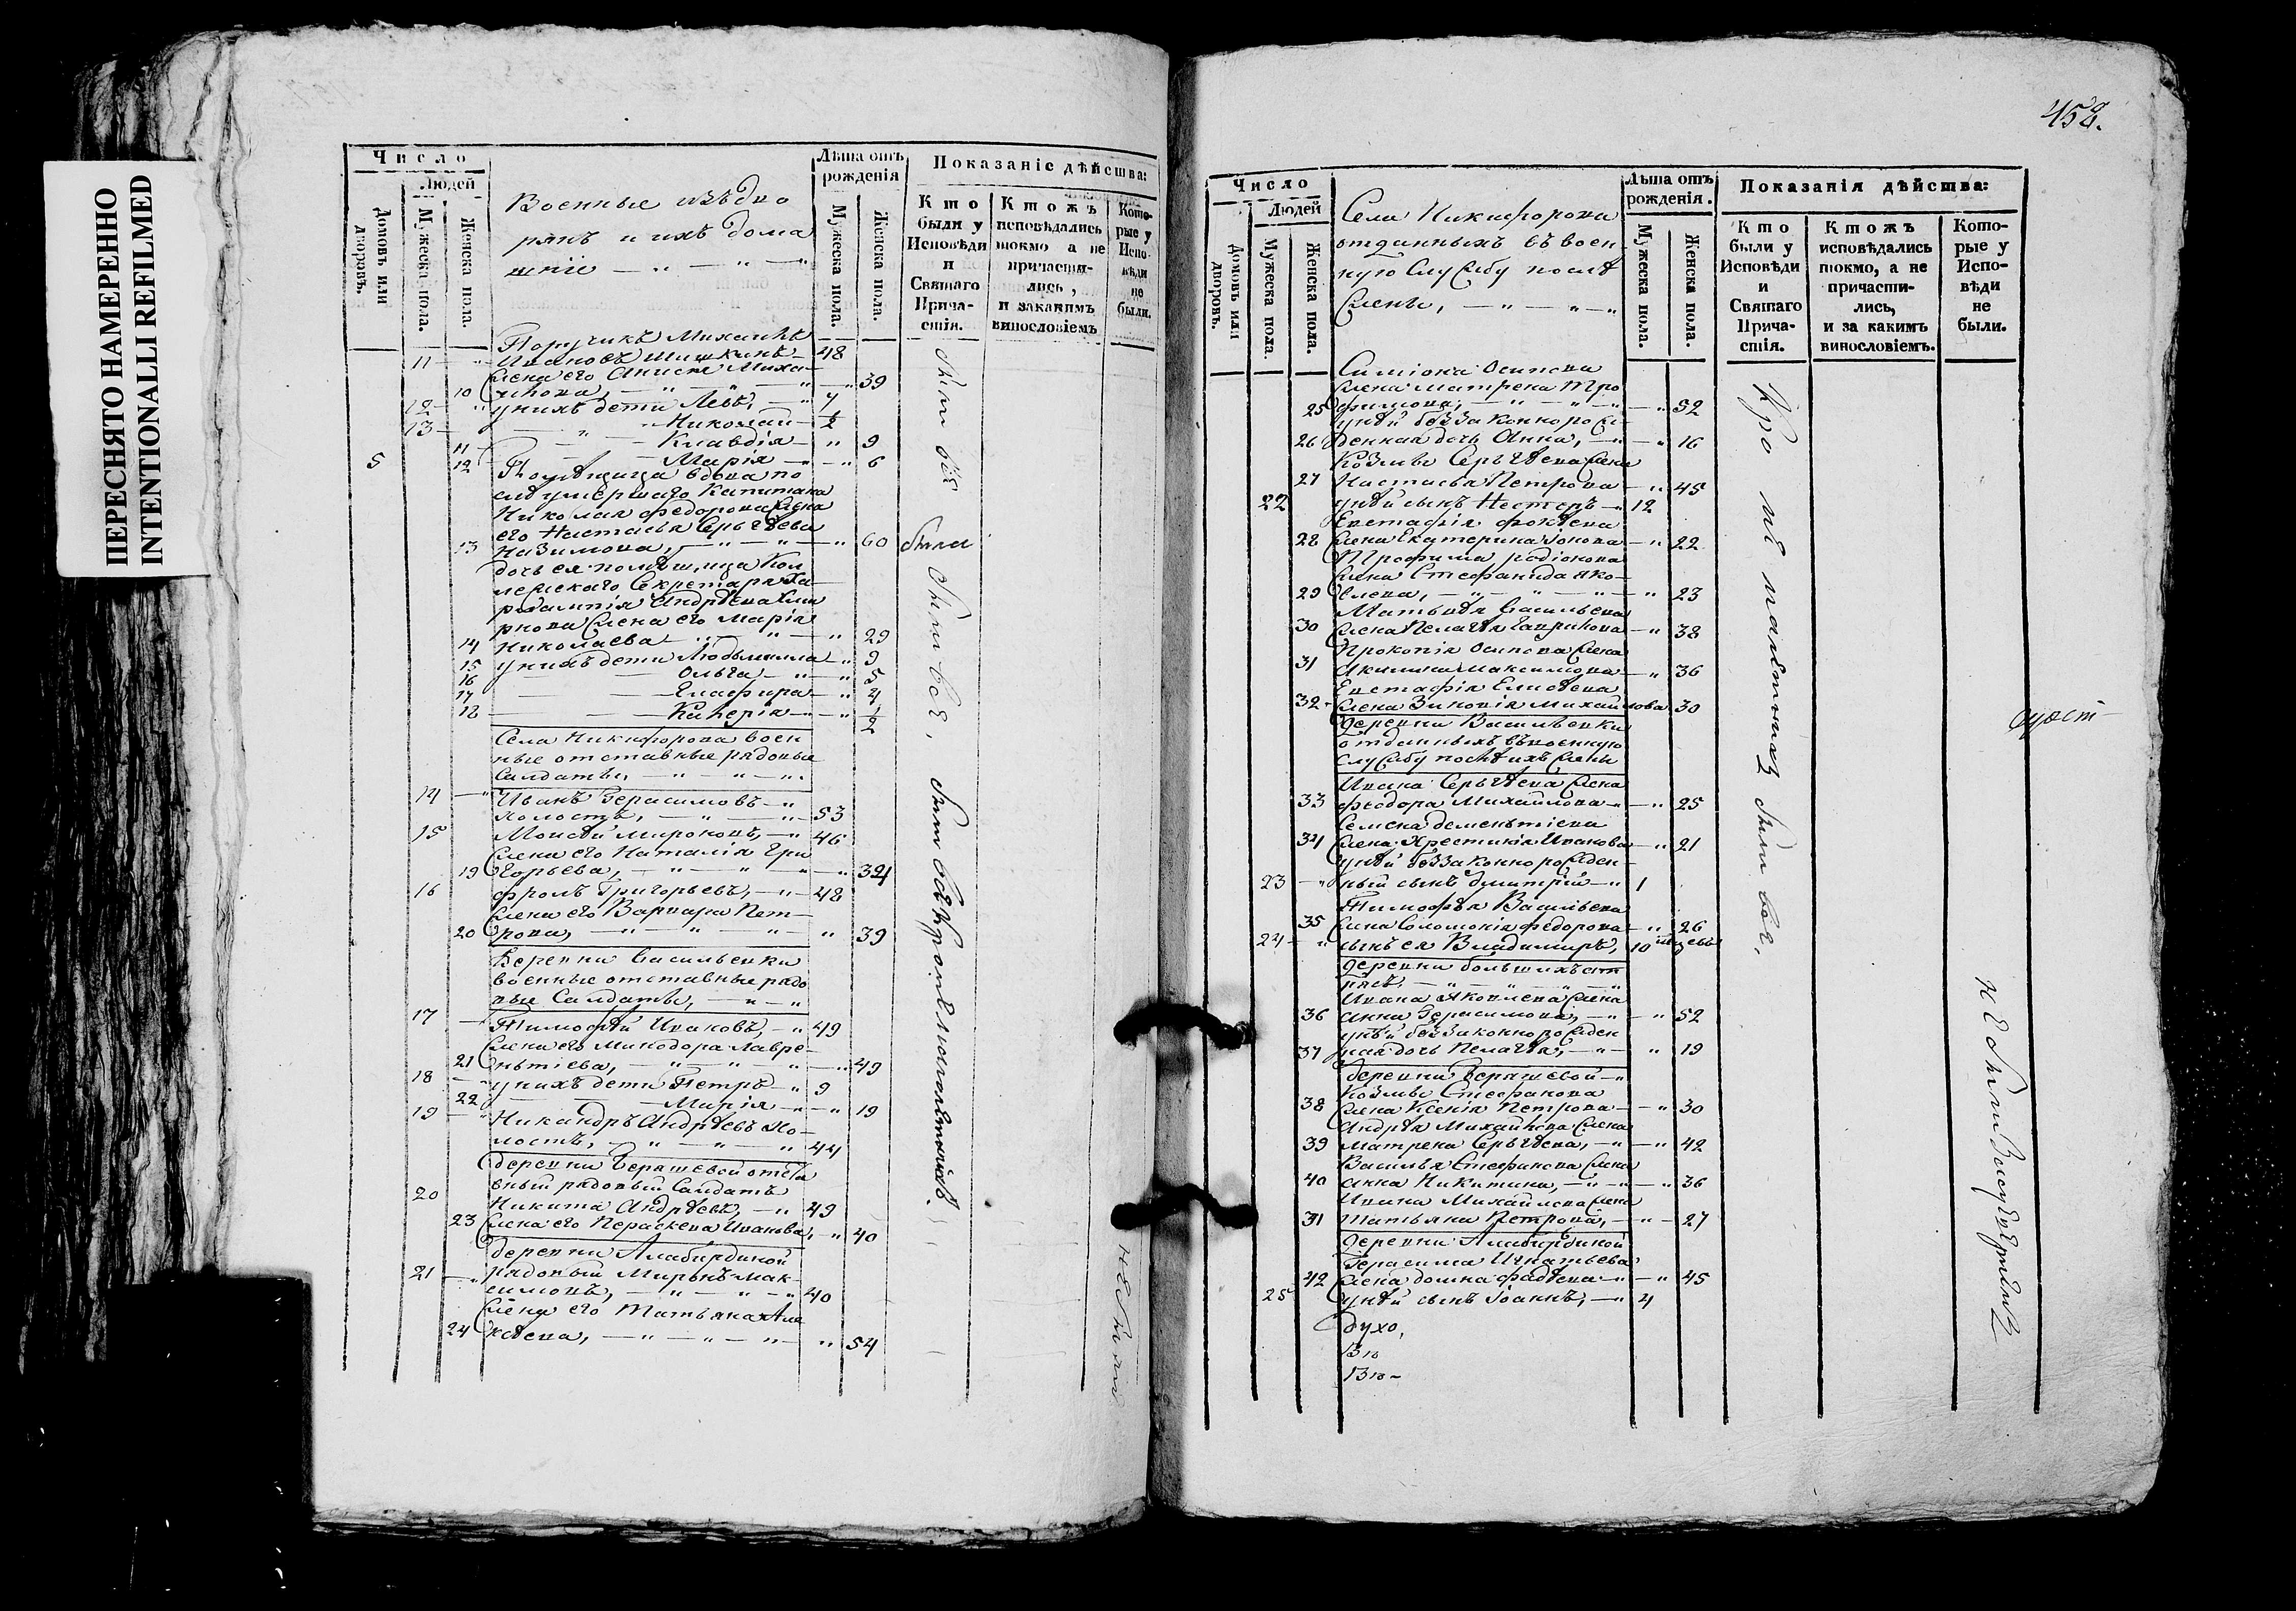 ПЕРЕСНЯТО НАМЕРЕННО
INTENTIONALLI REFILMED
Число
Людей
Домовъ или дворовъ.
Мужеска пола.
Женска пола.
Военные изъ дво
рянъ и ихъ дома
шніе — „ — „ —
Лѣта отъ рожденія
Мужеска пола.
Женска пола.
Показаніе дѣйства:
Кто были у Исповѣди и Святаго Прича-стія.
Ктожъ исповѣдались токмо а не причасти-лись, и закакимъ винословіемъ
Кото-рые у Испо-вѣди не были.
Порутчикъ Михаилъ
11 — „ Ивановъ Шишкинъ — 48
Жена его Анися Миха-
10 илова, — „ — „ — „ 39
12 — „ у нихъ дети Левъ, — „ 7
13 — — „ — Николай — 1/2
11 — — — Клавдія — „ 9
12 — — — Марія — „ 6
5 Помѣщица вдова по
слѣ умершаго Капитана
Николая Федорова жена
его Настасья Сергѣева
13 Назимова, — „ — „ — „ 60 были
дочь ея помѣщица Кол
лежскаго Секретаря Ха-
рлампія Андрѣева Сми
рнова жена его Марія
14 Николаева — „ — „ 29
15 у нихъ дети Людьмилла — „ 9
16 — — Ольга — „ — „ 5
17 — — — Глафира — „ 4
18 — — — Калерія — „ — „ 1/2
Села Никифорова воен
ные отставные рядовые
Салдаты, — „ — „ — „
14 — „ Иванъ Герасимовъ — „
холостъ, — „ — „ 53
15 Моисей Мироновъ, — „ 46
Жена его Наталія Гри
19 горьева, — „ — „ — „ 34
16 Фролъ Григорьевъ, — „ — 48
Жена его Варвара Пет-
20 рова, — „ — „ — „ — „ 39
Деревни Васильевки
военные отставные рядо
вые Салдаты, — „ — „
17 — Тимофѣй Ивановъ, — „ 49
Жена его Минодора Лавре-
21 нтіева, — „ — „ — „ 49
18 — „ у нихъ дети Петръ — „ 9
22 — — — Марія — „ — „ 19
19 — „ Никандръ Андрѣевъ хо-
лостъ, — „ — „ — „ 44
деревни Беряшевой отста
вный рядовый Салдатъ
20 Никита Андрѣевъ, — „ 49
23 Жена его Параскева Иванова, — „ 40
деревни Алабирдиной
21 — „ рядовый Миронъ Мак-
симовъ, — „ — „ — „ 40
Жена его Татьяна Але
24 ксѣева, — „ — „ — „ — „ 54
были всѣ
были всѣ, были всѣ кромѣ малолѣтнихъ.
не были
458.
Число
Людей
Домовъ или дворовъ.
Мужеска пола.
Женска пола.
Села Никифорова
отданныхъ въ воен-
ную службу послѣ
жены, — „ — „ — „
Лѣта отъ рожденія.
Мужеска пола.
Женска пола.
Показанія дѣйства:
Кто были у Исповѣди и Святаго Прича-стія.
Ктожъ исповѣдались токмо, а не причасти-лись, и за какимъ винословіемъ.
Кото-рые у Испо-вѣди не были.
Симіона Осипова
Жена Матрена Тро
25 фимова, — „ — „ — „ 52
у нѣй беззаконнорож-
26 денная дочь Анна, — „ — „ 16
Козьмы Сергѣева Жена
27 Настасья Петрова — „ 45
22 у нѣй сынъ Нестеръ — „ 12
Евстафія Фокѣева
28 Жена Екатерина Іонова — „ 22
Трофима Родіонова
Жена Стефанида Яко-
29 влева, — „ — „ — „ — „ 23
Матвѣя Васильева
30 Жена Пелагѣя Гаврилова — „ 38
Прокопія Осипова Жена
31 Акилина Максимова — „ 36
Евстафія Елисѣева
32 — Жена Зиновія Михайлова 30
Деревни Васильевки
отданныхъ въ военную
службу послѣ ихъ Жены
Ивана Сергѣева Жена
33 Феодора Михайлова — „ — „ 25
Семена Дементіева
34 Жена Христинія Иванова — „ 21
у нѣй беззаконнорожден-
23 — „ ный сынъ Дмитрій — „ 1
Тимофѣя Васильева
35 Жена Соломонія Федорова — „ 26
24 — „ сынъ ея Владимиръ, 10 мѣсяцевъ
36 Ивана Яковлева Жена
Анна Герасимова, — „ — „ 52
у нѣй беззаконнорожден
37 ная дочь Пелагѣя, — „ — „ 19
деревни Беряшевой — „
Козьмы Стефанова
38 Жена Ксенія Петрова — „ 30
Андрѣя Михайлова Жена
39 Матрена Сергѣева, — „ — „ 42
Василья Стефанова Жена
40 Анна Никитина, — „ — „ — „ 36
Ивана Михайлова Жена
31 Татьяна Петрова, — „ — 27
Деревни Алабирдиной
Герасима Игнатьева
42 Жена Домна Фадѣева — „ — „ 45
25 у нѣй сынъ Іоаннъ, — „ 4
Духо,
Кромѣ малолѣтныхъ были всѣ.